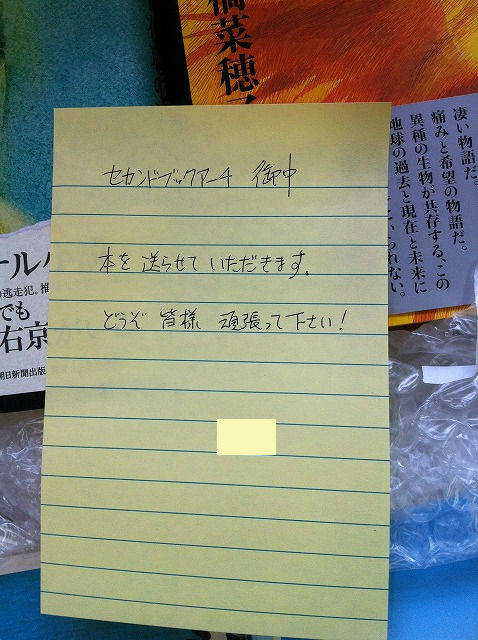 橋菜穂
凄い物語だ。
痛みと希望の物語だ。
異種の生物が共存する、この
地球の過去と現在と未来に
いられない。
セカンドブックアーチ 御中
本を 送らせて いただきます。
どうぞ 皆様 頑張って下さい!
ール
の逃走犯。
でも
右京
朝日新聞出版